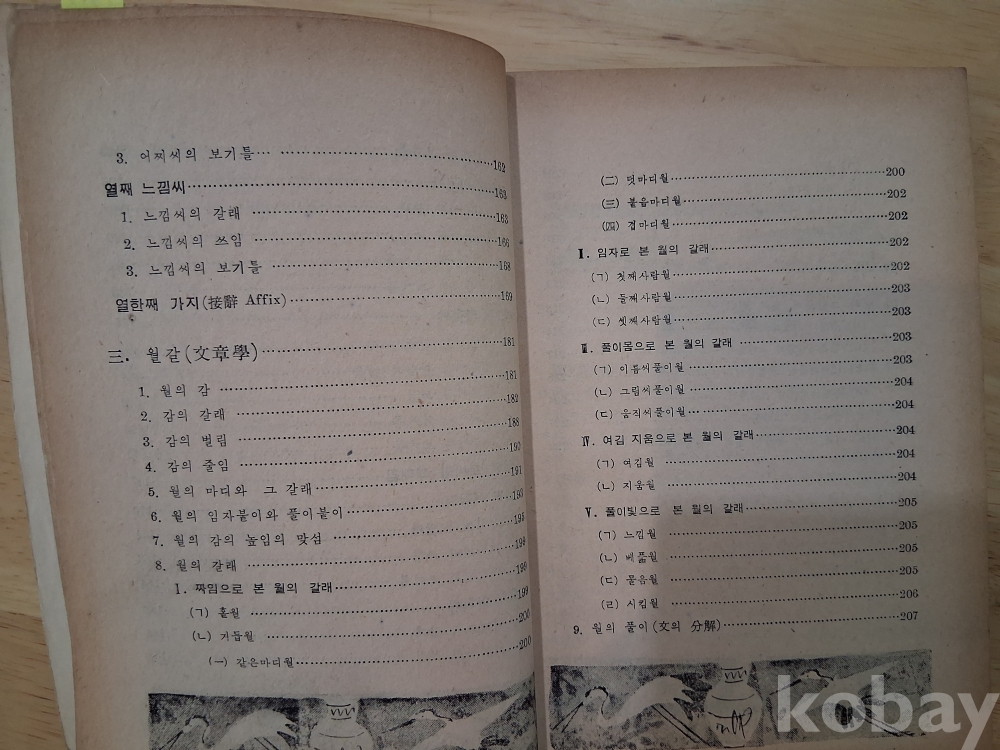 3. 어찌씨의 보기틀 162
열째 느낌씨 163
1. 느낌씨의 갈래 163
2. 느낌씨의 쓰임 166
3. 느낌씨의 보기틀 168
열한째 가지(接辭 Affix) 169
三. 월갈(文章學) 181
1. 월의 감 181
2. 감의 갈래 182
3. 감의 벌림 188
4. 감의 줄임 190
5. 월의 마디와 그 갈래 191
6. 월의 임자붙이와 풀이붙이 193
7. 월의 감의 높임의 맞섬 195
8. 월의 갈래 199
Ⅰ. 짜임으로 본 월의 갈래 199
(ㄱ) 홑월 199
(ㄴ) 거듭월 200
(一) 같은마디월 200
(二) 덧마디월 200
(三) 붙음마디월 202
(四) 겹마디월 202
Ⅱ. 임자로 본 월의 갈래 202
(ㄱ) 첫째사람월 202
(ㄴ) 둘째사람월 203
(ㄷ) 셋째사람월 203
Ⅲ. 풀이몸으로 본 월의 갈래 203
(ㄱ) 이름씨풀이월 203
(ㄴ) 그림씨풀이월 204
(ㄷ) 움직씨풀이월 204
Ⅳ. 여김 지움으로 본 월의 갈래 204
(ㄱ) 여김월 204
(ㄴ) 지움월 204
Ⅴ. 풀이빛으로 본 월의 갈래 205
(ㄱ) 느낌월 205
(ㄴ) 베풂월 205
(ㄷ) 물음월 205
(ㄹ) 시킴월 206
9. 월의 풀이(文의 分解) 207
kobay